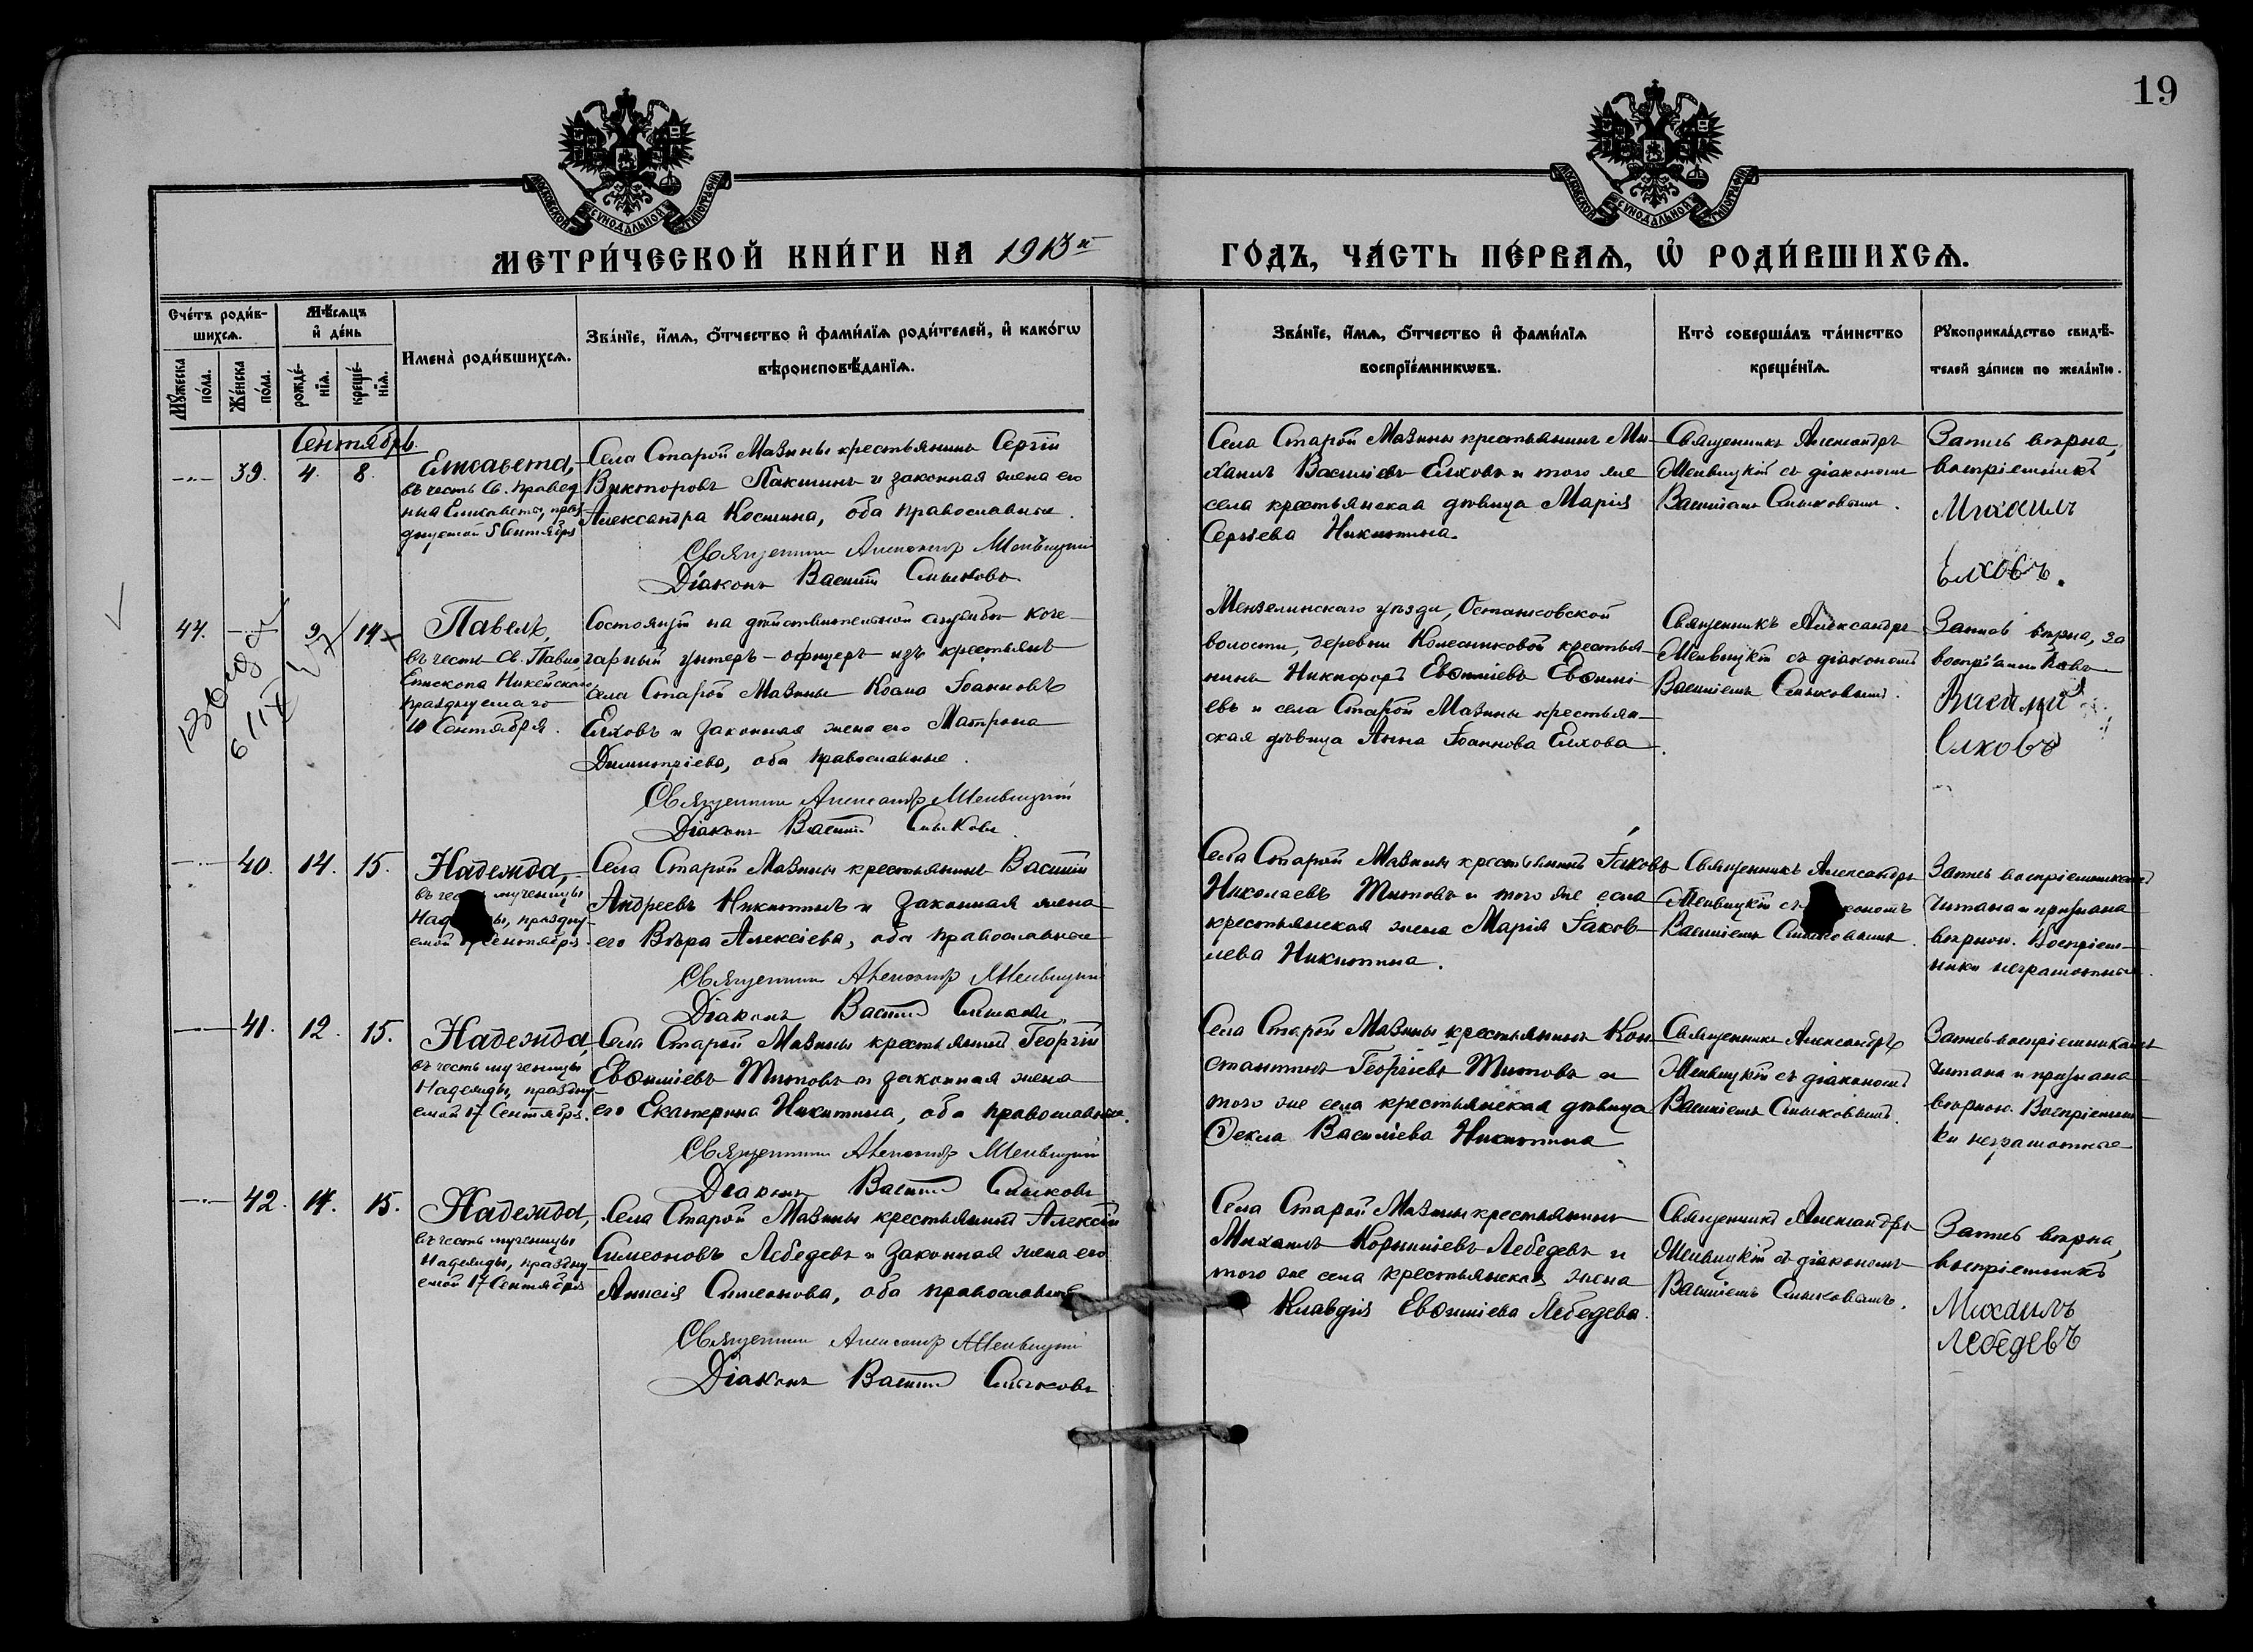 19
МОСКОВСКОЙ СѴНОДАЛЬНОЙ ТИПОГРАФІИ
МОСКОВСКОЙ СѴНОДАЛЬНОЙ ТИПОГРАФІИ
МЕТРИ́ЧЕСКОЙ КНИ́ГИ НА 1913й ГО́ДЪ, ЧА́СТЬ ПЕ́РВАѦ, Ѡ҆ РОДИ́ВШИХСѦ.
Сче́тъ роди́в-
шихсѧ.
Мꙋ́жеска по́ла.
Же́нска по́ла.
Мѣ́сѧцъ
и҆ де́нь
рожде́-
нїѧ.
креще́-
нїѧ.
Имена̀ роди́вшихсѧ.
Зва́нїе, и҆́мѧ, ѻ҆́тчество и҆ фами́лїѧ роди́телей, и҆ како́гѡ
вѣроисповѣ́данїѧ.
Зва́нїе, и҆́мѧ, ѻ҆́тчество и҆ фами́лїѧ
воспрїе́мникѡвъ.
Кто̀ соверша́лъ та́инство
креще́нїѧ.
Рꙋкоприкла́дство свидѣ́-
телей за́писи по жела́нїю.
Сентябрь.
—"— 39. 4. 8.
Елисавета,
въ честь Св. правед
ныя Елисаветы, празд
днуемой 5 Сентября
Села Старой Мазины крестьянинъ Сергій
Викторовъ Пакшинъ и законная жена его
Александра Космина, оба православные.
Священникъ Александръ
Діаконъ Василій
Села Старой Мазины крестьянинъ Ми-
хаилъ Васильевъ Елховъ и того же
села крестьянская дѣвица Марія
Сергіева Никитина.
Священникъ Александръ
съ діакономъ
Василіемъ
Запись вѣрна,
воспріемникъ
Михаилъ
Елховъ.
47. 9 14
Павелъ,
въ честь Св. Павла
Епископа Никейскаго
празднуемаго
10 Сентября.
Состоящій на дѣйствительной службѣ коче-
гарный унтеръ-офицеръ изъ крестьянъ
села Старой Мазины Косма Іоанновъ
Елховъ и законная жена его Матрона
Димитріева, оба православные.
Священникъ Александръ
Діаконъ Василій
Мензелинскаго уѣзда,
волости, деревни Колесниковой крестья-
нинъ Никифоръ Евѳиміевъ Евѳимі-
евъ и села Старой Мазины крестьян-
ская дѣвица Анна Іоаннова Елхова.
Священникъ Александръ
съ діакономъ
Василіемъ
Запись вѣрна, за
воспріемниковъ
Василій
Елховъ
—"— 40. 14. 15.
Надежда,
въ честь мученицы
праздну-
емой Сентября.
Села Старой Мазины крестьянинъ Василій
Андреевъ Никитинъ и законная жена
его Вѣра Алексіева, оба православные
Священникъ Александръ
Діаконъ Василій
Села Старой Мазины крестьянинъ Іаковъ
Николаевъ Титовъ и того же села
крестьянская жена Марія Іаков-
лева Никитина.
Священникъ Александръ
Василіемъ
Запись воспріемникамъ
читана и признана
вѣрною. Воспріем-
ники неграмотные.
—"— 41. 12. 15.
Надежда,
въ честь мученицы
Надежды, праздну-
емой 17 Сентября.
Села Старой Мазины крестьянинъ Георгій
Евѳиміевъ Титовъ и законная жена
его Екатерина Никитина, оба православные.
Священникъ Александръ
Діаконъ Василій
Села Старой Мазины крестьянинъ Кон-
стантинъ Георгіевъ Титовъ и
того же села крестьянская дѣвица
Ѳекла Василіева Никитина
Священникъ Александръ
съ діакономъ
Василіемъ
Запись воспріемникамъ
читана и признана
вѣрною. Воспріемни-
ки неграмотные
—"— 42. 14. 15.
Надежда,
въ честь мученицы
Надежды, праздну-
емой 17 Сентября
Села Старой Мазины крестьянинъ Алексій
Симеоновъ Лебедевъ и законная жена его
Анисія Симеонова, оба православные
Священникъ Александръ
Діаконъ Василій
Села Старой Мазины крестьянинъ
Михаилъ Корниліевъ Лебедевъ и
того же села крестьянская жена
Клавдія Евѳиміева Лебедева.
Священникъ Александръ
съ діакономъ
Василіемъ
Запись вѣрна,
воспріемникъ
Михаилъ
Лебедевъ